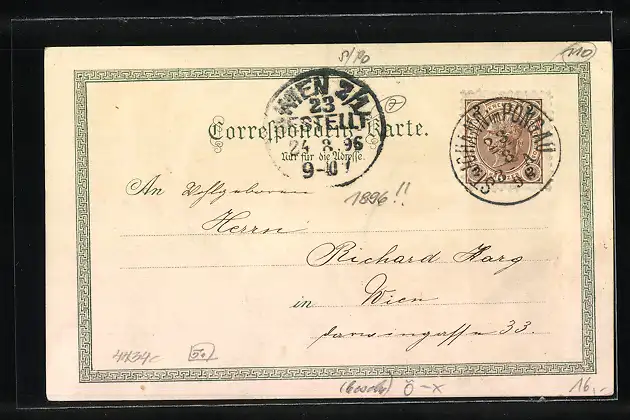 5/90
110
WIEN 2/1
23
BESTELLT
24.8.96
9-10
Correspondenz-Karte.
Nur für die Adresse.
7
ST. JOHANN im PONGAU
An Wohlgeboren
1896!!
Herrn
Richard Harg
in Wien
Darwingasse 33.
4734-
50
Ö-X
16.-